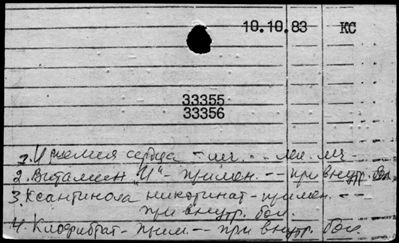 10.10.83 КС
33355
33356
1. Ишемия сердца - леч. - - леч. леч
2. Витамин "U" - примен. - - при внутр. бол.
3. Ксантинола никотинат - примен. - -
при внутр. бол.
4. Клофибрат - прим. - - при внутр. бол.